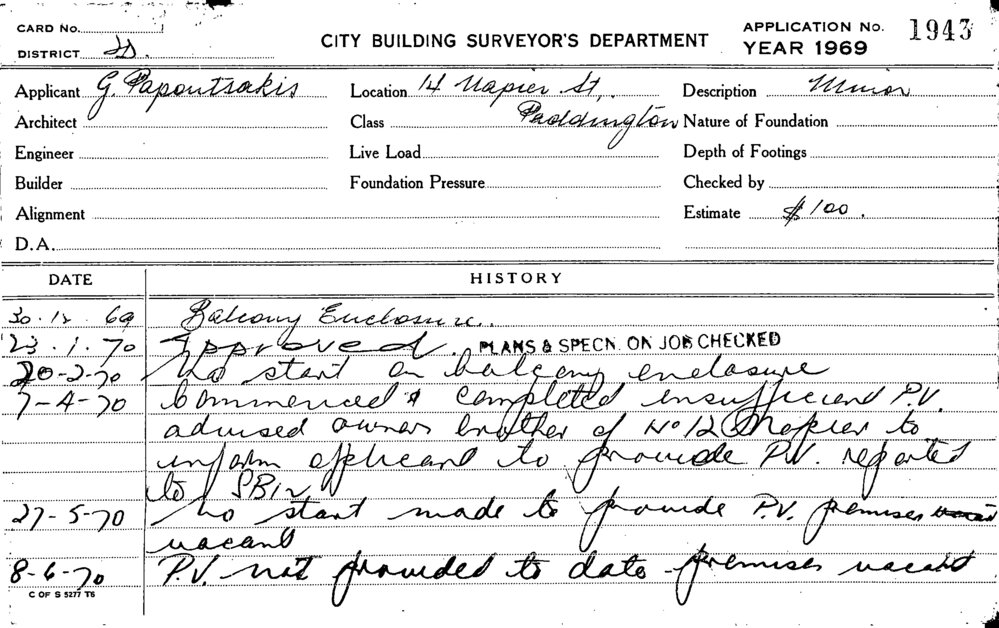 CARD No.
DISTRICT
CITY BUILDING SURVEYOR'S DEPARTMENT
APPLICATION No. 1943
YEAR 1969
Applicant G. Papoutsakis
Location 14 Napier St,
Paddington
Description Minor
Architect
Class
Nature of Foundation
Engineer
Live Load
Depth of Footings
Builder
Foundation Pressure
Checked by
Alignment
Estimate $100.
D.A.
DATE
HISTORY
30.12.69 Balcony Enclosure.
23.1.70 Approved. PLANS & SPECN. ON JOB CHECKED
20-2-70 No start on balcony enclosure
7-4-70 Commenced & completed insufficient P.V.
advised owners brother of No 12 Napier to
inform applicant to provide P.V. reported
to SBI
27-5-70 No start made to provide P.V. premises
vacant
8-6-70 P.V. not provided to date premises vacant
C OF S 5277 T6